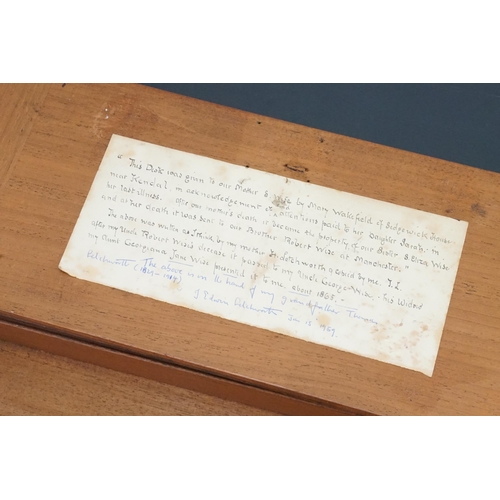 "This Desk was given to our Mother by Mary Wakefield of Sedgewick House
near Kendal, in acknowledgement of attentions paid to her Daughter Sarah, in
her last illness. after our mother's death it became the property of our Sister S. Eliza Wise
and at her death it was sent to our Brother Robert Wise at Manchester."
The above was written as I think by my mother Dorothy
after my Uncle Robert Wise's decease it passed to my Uncle George Wise, his Widow
my Aunt Georgiana Jane Wise presented it to me about 1885."
The above is in the hand of my Grandfather Thomas
(1849-1927)
J Edwin Jan 18 1969.